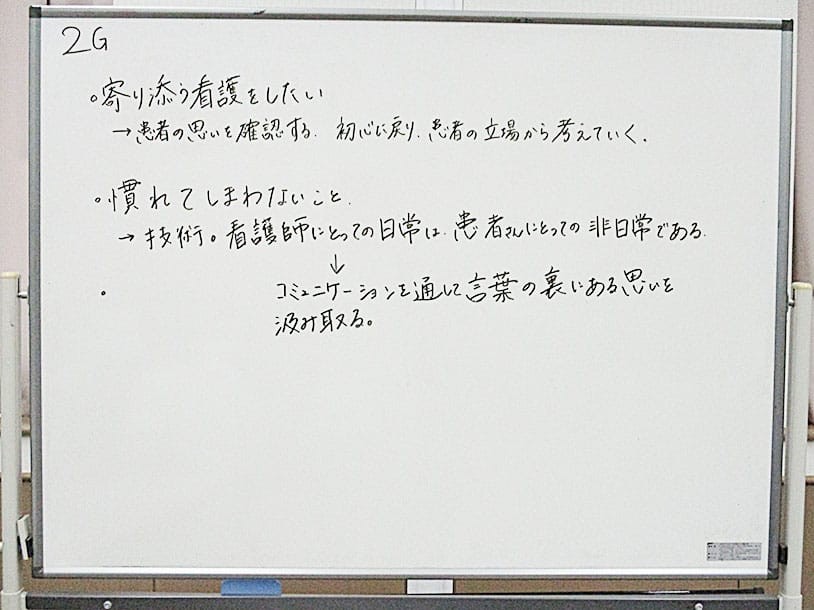 2G
。寄り添う看護をしたい
→患者の思いを確認する. 初心に戻り、患者の立場から考えていく.
。慣れてしまわないこと.
→ 技術。看護師にとっての日常は、患者さんにとっての非日常である.
↓
・ コミュニケーションを通して言葉の裏にある思いを
汲み取る。